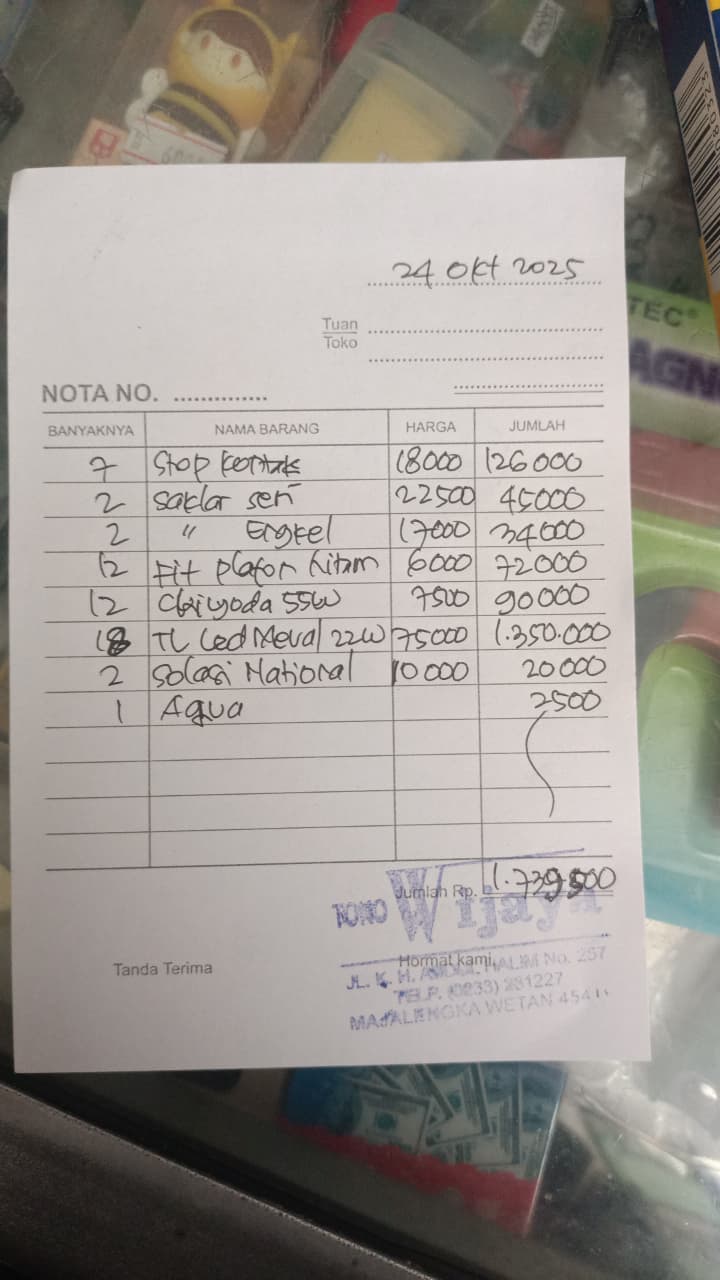 24 Okt 2025
Tuan
Toko
NOTA NO. ..............
BANYAKNYA NAMA BARANG HARGA JUMLAH
7 Stop kontak 18000 126000
2 Saklar seri 22500 45000
2 " Engkel 17000 34000
12 Fit plafon hitam 6000 72000
12 55W 7500 90000
18 TL Led Meval 22W 75000 1.350.000
2 Solasi National 10000 20000
1 Aqua 2500
Jumlah Rp. 1.739500
TOKO Wijaya
Tanda Terima Hormat kami,
JL. K. H. ABDUL HALIM No. 257
TELP. (0233) 281227
MAJALENGKA WETAN 454
TEC®
AGN